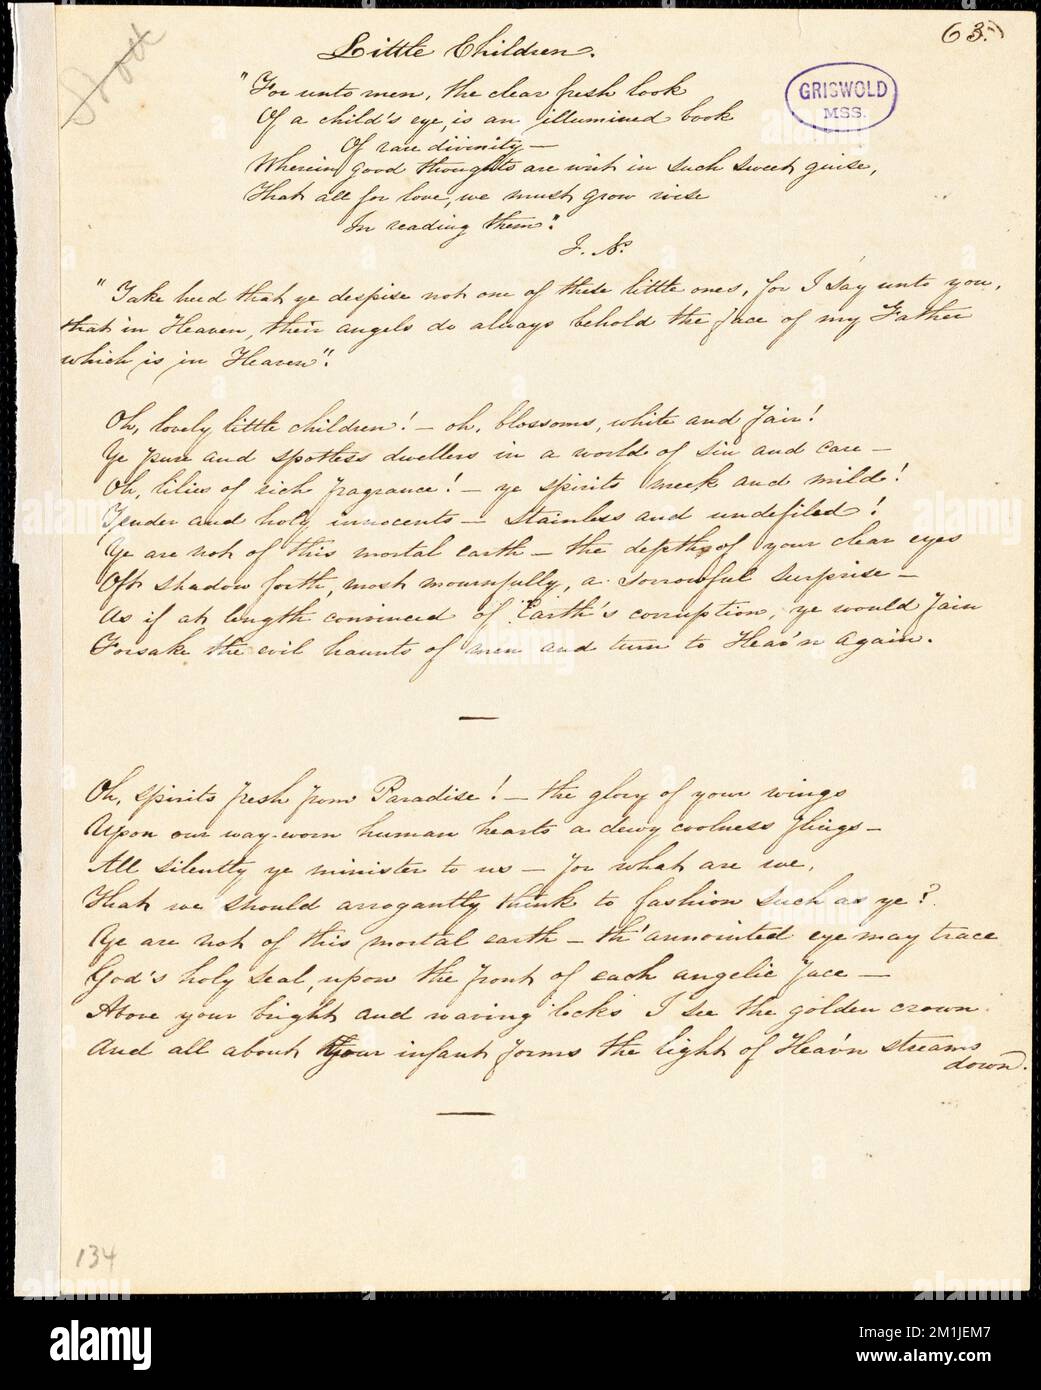 63.
Little Children.
GRISWOLD
MSS.
"For unto men, the clear fresh look
Of a child's eye, is an illumined book
Of rare divinity —
Wherein good thoughts are writ in such sweet guise,
That all for love, we must grow wise
In reading them".
J. N.
"Take heed that ye despise not one of these little ones, for I say unto you,
that in Heaven, their angels do always behold the face of my Father
which is in Heaven".
Oh, lovely little children! — oh, blossoms, white and fair!
Ye pure and spotless dwellers in a world of sin and care —
Oh, lilies of rich fragrance! — ye spirits meek and mild!
Tender and holy innocents — stainless and undefiled!
Ye are not of this mortal earth — the depths of your clear eyes
Oft shadow forth, most mournfully, a sorrowful surprise —
As if at length convinced of Earth's corruption, ye would fain
Forsake the evil haunts of men and turn to Heav'n again.
—
Oh, spirits fresh from Paradise! — the glory of your wings
Upon our way-worn human hearts a dewy coolness flings —
All silently ye minister to us — for what are we,
That we should arrogantly think to fashion such as ye?
Ye are not of this mortal earth — th' annointed eye may trace
God's holy seal, upon the front of each angelic face —
Above your bright and waving locks I see the golden crown
And all about your infant forms the light of Heav'n streams
down.
—
134
alamy
Image ID: 2M1JEM7
www.alamy.com